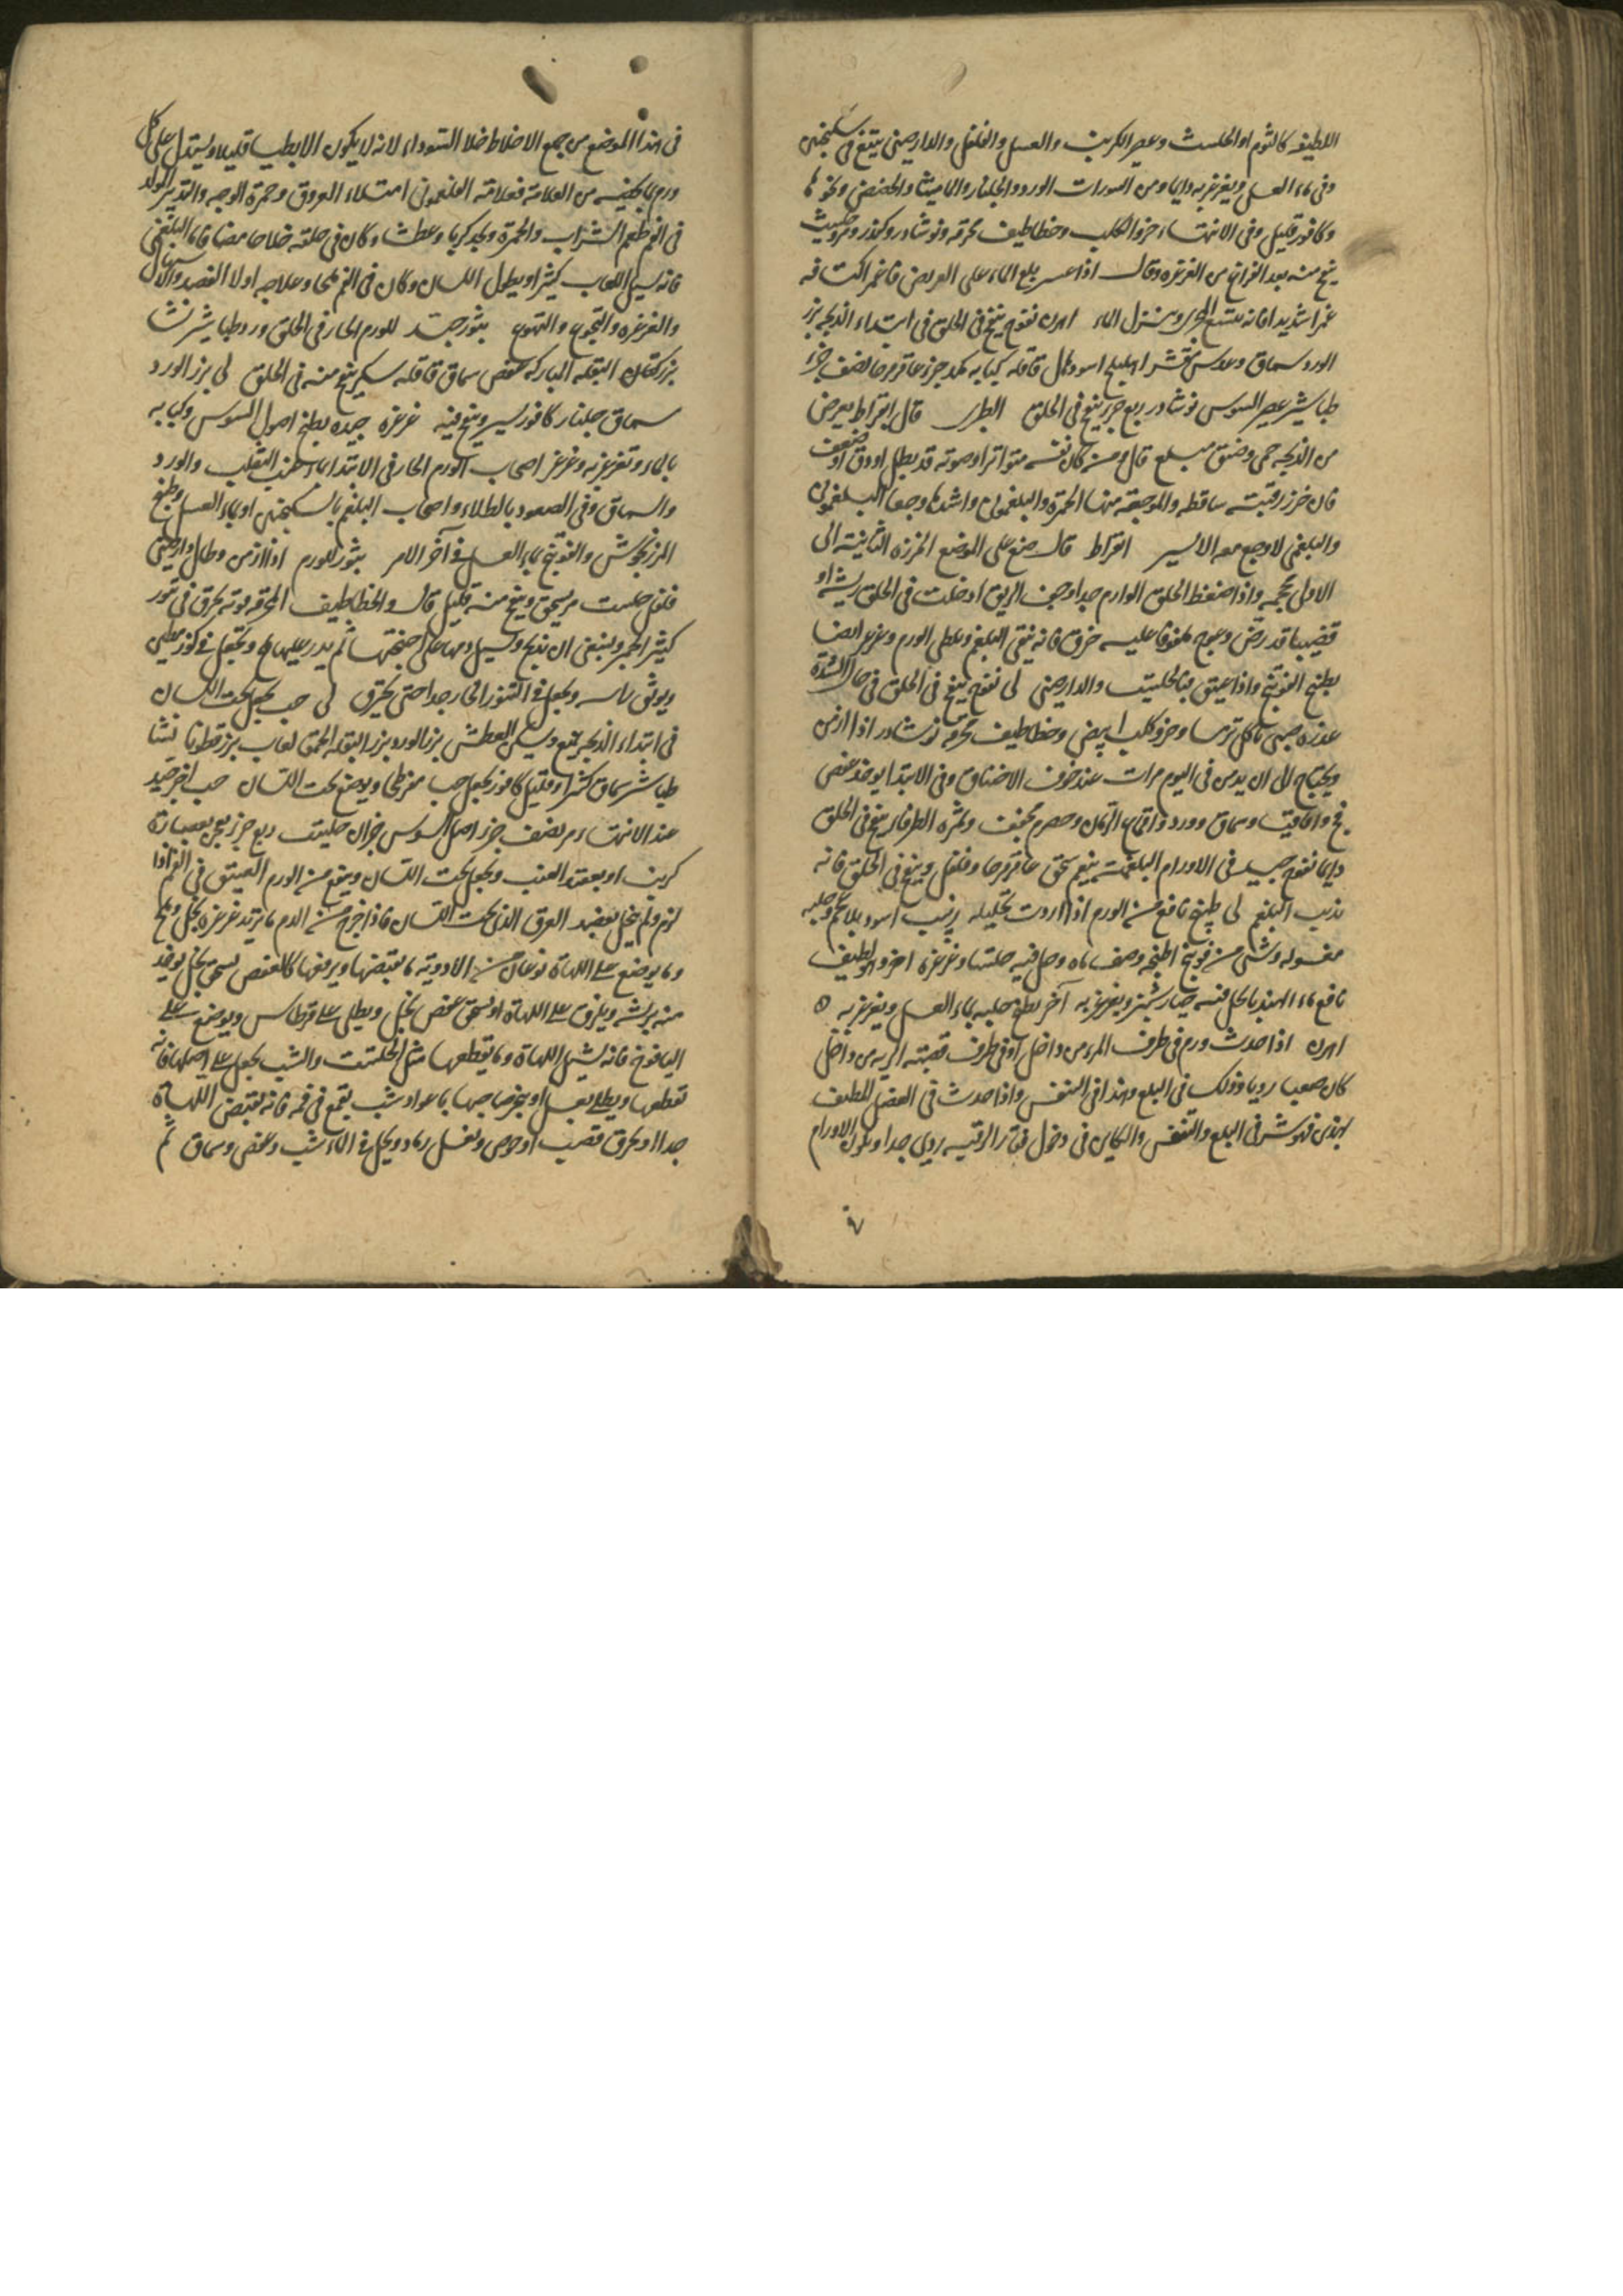 اللطيفه كالثوم او الحلتيت وعصير الكرنب والعسل والفلفل والدارصينى ينفخ فى سكنجبين
وفى ماء العسل ويغرغر به دايما ومن السورات الورد والجلنار والماميثا والحضض ونحوها
وكافور قليل وفى الانتهاء خرو الكلب وخطاطيف محرقه ونوشادر وكندر ومر وحلتيت
ينفخ منه بعد الفراغ من الغرغره وقال اذا عسر بلع الماء على المريض فاغمز اكتافه
غمزا شديدا فانه يتسع المجرى وينزل الماء اهرن نفوخ ينفخ فى الحلق فى ابتداء الذبحه بزر
الورد سماق وعدس مقشر اهليلج اسود كل قاقله كبابه مكد جزء عاقرقرحا نصف جزء
طباشير عصير السوس نوشادر ربع جزء ينفخ فى الحلق الطبرى قال ابقراط يعرض
من الذبحه حمى وضيق مبلع قال ومن كان نفسه متواترا وصوته قد بطل او دق او ضعف
فان خرز رقبته ساقطه والموجعه منها الحمرة والبلغمونى واشدها وجعا البلغمونى
والبلغمى لا وجع معه الا ليسير ابقراط قال ضع على الموضع الخرزه الثانيه الى
الاولى محجمه واذا ضغط الحلق الوارم جدا وجف الريق ادخلت فى الحلق ريشه او
قضيبا قد رض وعوج ملفوفا عليه خرق فانه ينقى البلغم ويطلى الورم وغرغر ايضا
بطبيخ الفوتنج واذا عتيق فبالحلتيت والدارصينى لى نفوخ ينفخ فى الحلق فى حال الشدة
عذره صبى ياكل ترمسا وخرو كلب ابيض وخطاطيف محرقه نوشادر اذا ازمن
ويحتاج الى ان يدس فى اليوم مرات عند خوف الاختناق وفى الابتدا يوخذ عفص
فج واقاقيا وسماق وورد واقماع الرمان وحصرم مجفف وثمره الطرفا ينفخ فى الحلق
دايما نفوخ جيد فى الاورام البلغميه ينعم سحق عاقرقرحا وفلفل وينفخ فى الحلق فانه
يذيب البلغم لى طبيخ نافع من الورم اذا اردت تحليله زبيب اسود بلا عجم وحلبه
مغسوله وشى من فوتنج اطبخه وصف ماه وحل فيه حلتيتا وغرغره اخر وهو لطيف
نافع ماء الهندبا يحل فيه خيار شنبر ويغرغر به آخر يطبخ حلبه بماء العسل ويغرغر به ٥
اهرن اذا حدث ورم فى طرف المرى من داخل او فى طرف قصبة الريه من داخل
كان صعبا رديا وذلك فى البلع وهذا فى التنفس واذا حدث فى العضل المطيف
بهذين فهو شر فى البلع والتنفس والكاين فى دخول فقار الرقبه ردى جدا ويكون الاورام
فى هذا الموضع من جمع الاخلاط خلا السوداء لانه لا يكون الا بطيا قليلا ويستدل على كل
ورم بما يخصه من العلامه فعلامة الفلغمونى امتلاء العروق وحمرة الوجه والتدبير المولد
فى الفم طعم الشراب والحمرة ويجد كربا وعطشا وكان فى حلقه خلا حامضا فاما البلغمى
فانه يسيل اللعاب كثيرا ويطول اللسان وكان فى الفم ملحا وعلاجه اولا الفصد والاسهال
والغرغره والتجوع والتهوع بثور جيد للورم الحار فى الحلق ورد طباشير نشا
بزر كتان البقله المباركه عفص سماق قاقله سكر ينفخ منه فى الحلق لى بزر الورد
سماق جلنار كافور يسير وينفخ فيه غرغره جيده يطبخ اصول السوس وكبابه
بالماء وتغرغر به وغرغر اصحاب الورم الحار فى الابتدا بماء عنب الثعلب والورد
والسماق وفى الصعود بالطلاء واصحاب البلغم بالسكنجبين او بماء العسل وطبيخ
المرزنجوش والفوتنج بماء العسل فى آخر الامر بثور للورم اذا ازمن وطال دارصينى
فلفل حلتيت مر يسحق وينفخ منه قليل قال والخطاطيف المحرقه قوته محرق فى تنور
كثير الجمر وينبغى ان يذبح ويسيل دمها على اجنحتها ثم يدر عليها ملح ويجعل فى كوز مطين
ويوثق راسه ويجعل فى التنور الحار جدا حتى يحترق لى حب يجعل تحت اللسان
فى ابتداء الذبحه يمنع ويسكن العطش بزر الورد بزر البقله الحمقا لعاب بزر قطونا نشا
طباشير سماق كثيرا وقليل كافور يجعل حب مفرطحا ويوضع تحت اللسان حب اخر جيد
عند الانتهاء مر نصف جزء اصل السوس جزان حلتيت ربع جزء يعجن بعصارة
كرنب او بعقيد العنب ويجعل تحت اللسان وينفع من الورم العتيق فى الفم اذا
لزم ولم ينحل بفصد العرق الذى تحت اللسان فاذا خرج من الدم ما تريد غرغره بخل وملح
وما يوضع على اللهاة نوعان من الادويه ما يقبضها ويرفعها كالعفص يسحق بخل يوخذ
منه بريشه ويلزق على اللهاة او يسحق عفص بخل ويطلى على قرطاس ويوضع على
اليافوخ فانه يشيل اللهاة وما يقطعها مثل الحلتيت والشب يجعل على اصلها فانه
تقطعها ويطلى بعسل او يغرغر صاحبها بماء سواد شب يقمع فى فمه فانه يقبض اللهاة
جدا او يحرق قصب او حوص ويغسل رماده ويحل فى الماء شب وعفص وسماق ثم